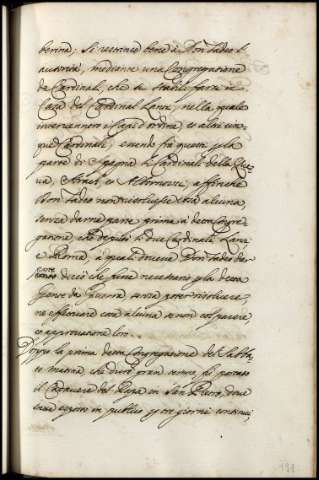 berina; Si restrinse bene à Don Tadeo l'
autorità, mediante una Congregatione
de Cardinali, che si stabilì farsi in
Casa del Cardinal Lante, nella quale
intervennero i Capi d'ordine, et altri cin-
que Cardinali, essendo frà questi p la
parte di Spagna li Cardinali della Cue-
va, et Albornozzi, affinche
Don Tadeo non risolvesse cosa alcuna,
senza darne parte prima à detta Congre-
gatione, che deputò li due Cardinali Lante
e Roma, à quali dovesse Don Tadeo dar
conto di ciò che fosse necessario p la detta
Gente da guerra senza poter risolvere,
nè effettuare cosa alcuna se non col parere,
et approvatione loro.
Doppo la prima detta Congregatione del Sabba-
to mattina, che durò gran tempo, fù portato
il Cadavere del Papa in San Pietro, dove
stette esposto in publico p tre giorni continui,
191